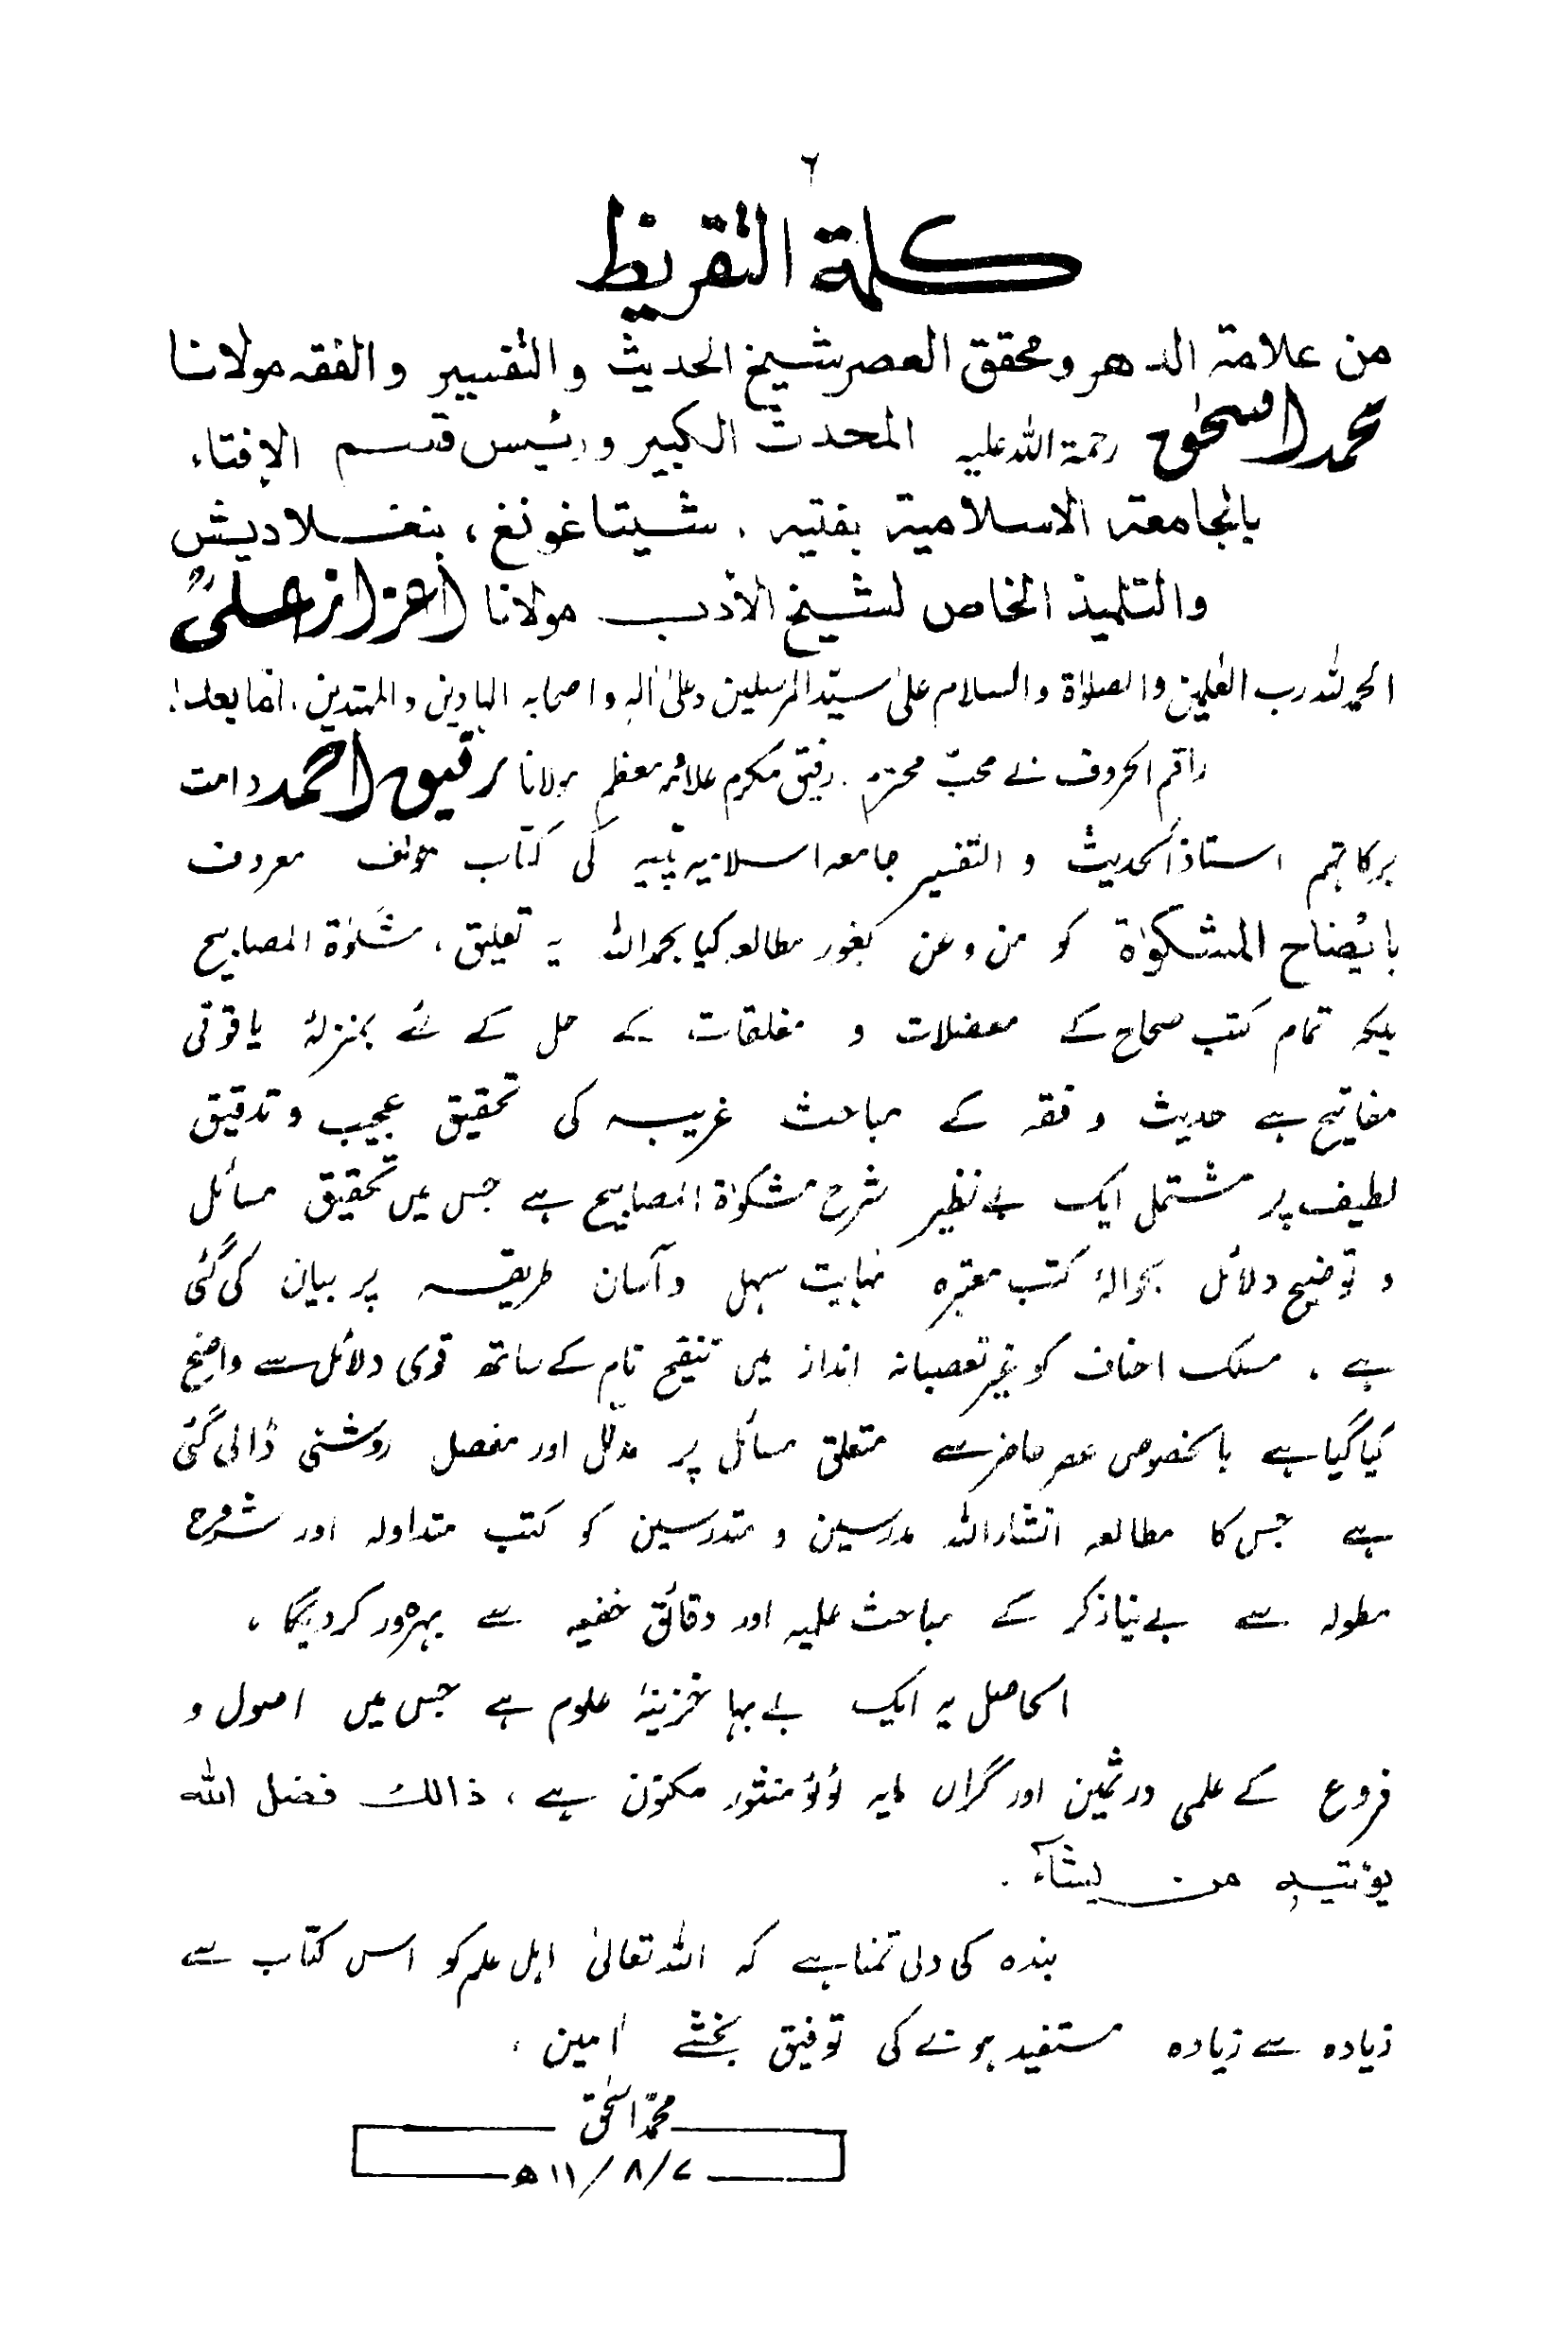 ٦
كلمة التقريظ
من علامة الدهر ومحقق العصر شيخ الحديث والتفسير والفقه مولانا
محمد اسحٰق رحمة الله عليه المحدث الكبير ورئيس قسم الإفتاء
بالجامعة الاسلامية بفتيه ، شيتاغونغ ، بنغلاديش
والتلميذ الخاص لشيخ الأدب مولانا اعزاز على رح
الحمد لله رب العٰلمين والصلوٰة والسلام علىٰ سيّد المرسلين وعلىٰ اٰلہٖ واصحابہ الہادین والمہتدین ۔ امّا بعد !
راقم الحروف نے محبّ محترم ۔ رفیق مکرم علامۂ معظم مولانا رفیق احمد دامت
برکاتہم استاذ الحدیث و التفسیر جامعہ اسلامیہ پٹیہ کی کتاب مؤلف معروف
بایضاح المشکوٰۃ کو من وعن بغور مطالعہ کیا بحمد اللہ یہ تعلیق ، مشکوٰۃ المصابیح
بلکہ تمام کتب صحاح کے معضلات و مغلقات کے حل کے لئے بمنزلۂ یاقوتی
مفاتیح ہے حدیث و فقہ کے مباحث غریبہ کی تحقیق عجیب و تدقیق
لطیف پر مشتمل ایک بے نظیر شرح مشکوٰۃ المصابیح ہے جس میں تحقیق مسائل
و توضیح دلائل بحوالۂ کتب معتبرہ نہایت سہل و آسان طریقہ پر بیان کی گئی
ہے ۔ مسلک احناف کو غیر تعصبانہ انداز میں تنقیح تام کے ساتھ قوی دلائل سے واضح
کیا گیا ہے بالخصوص عصر حاضر سے متعلق مسائل پر مدلّل اور مفصل روشنی ڈالی گئی
ہے جس کا مطالعہ انشاء اللہ مدرسین و متدرسین کو کتب متداولہ اور شروح
مطولہ سے بے نیاز کر کے مباحث علمیہ اور دقائق خفیہ سے بہرہ ور کردیگا ،
الحاصل یہ ایک بے بہا خزینۂ علوم ہے جس میں اصول و
فروع کے علمی در ثمین اور گراں مایہ لؤلؤ منثور مکنون ہے ، ذالك فضل الله
يؤتيه من يشآء .
بندہ کی دلی تمنا ہے کہ اللہ تعالیٰ اہل علم کو اس کتاب سے
زیادہ سے زیادہ مستفید ہونے کی توفیق بخشے اٰمین ،
محمّد اسحٰق
۷/۸/۱۱ھ